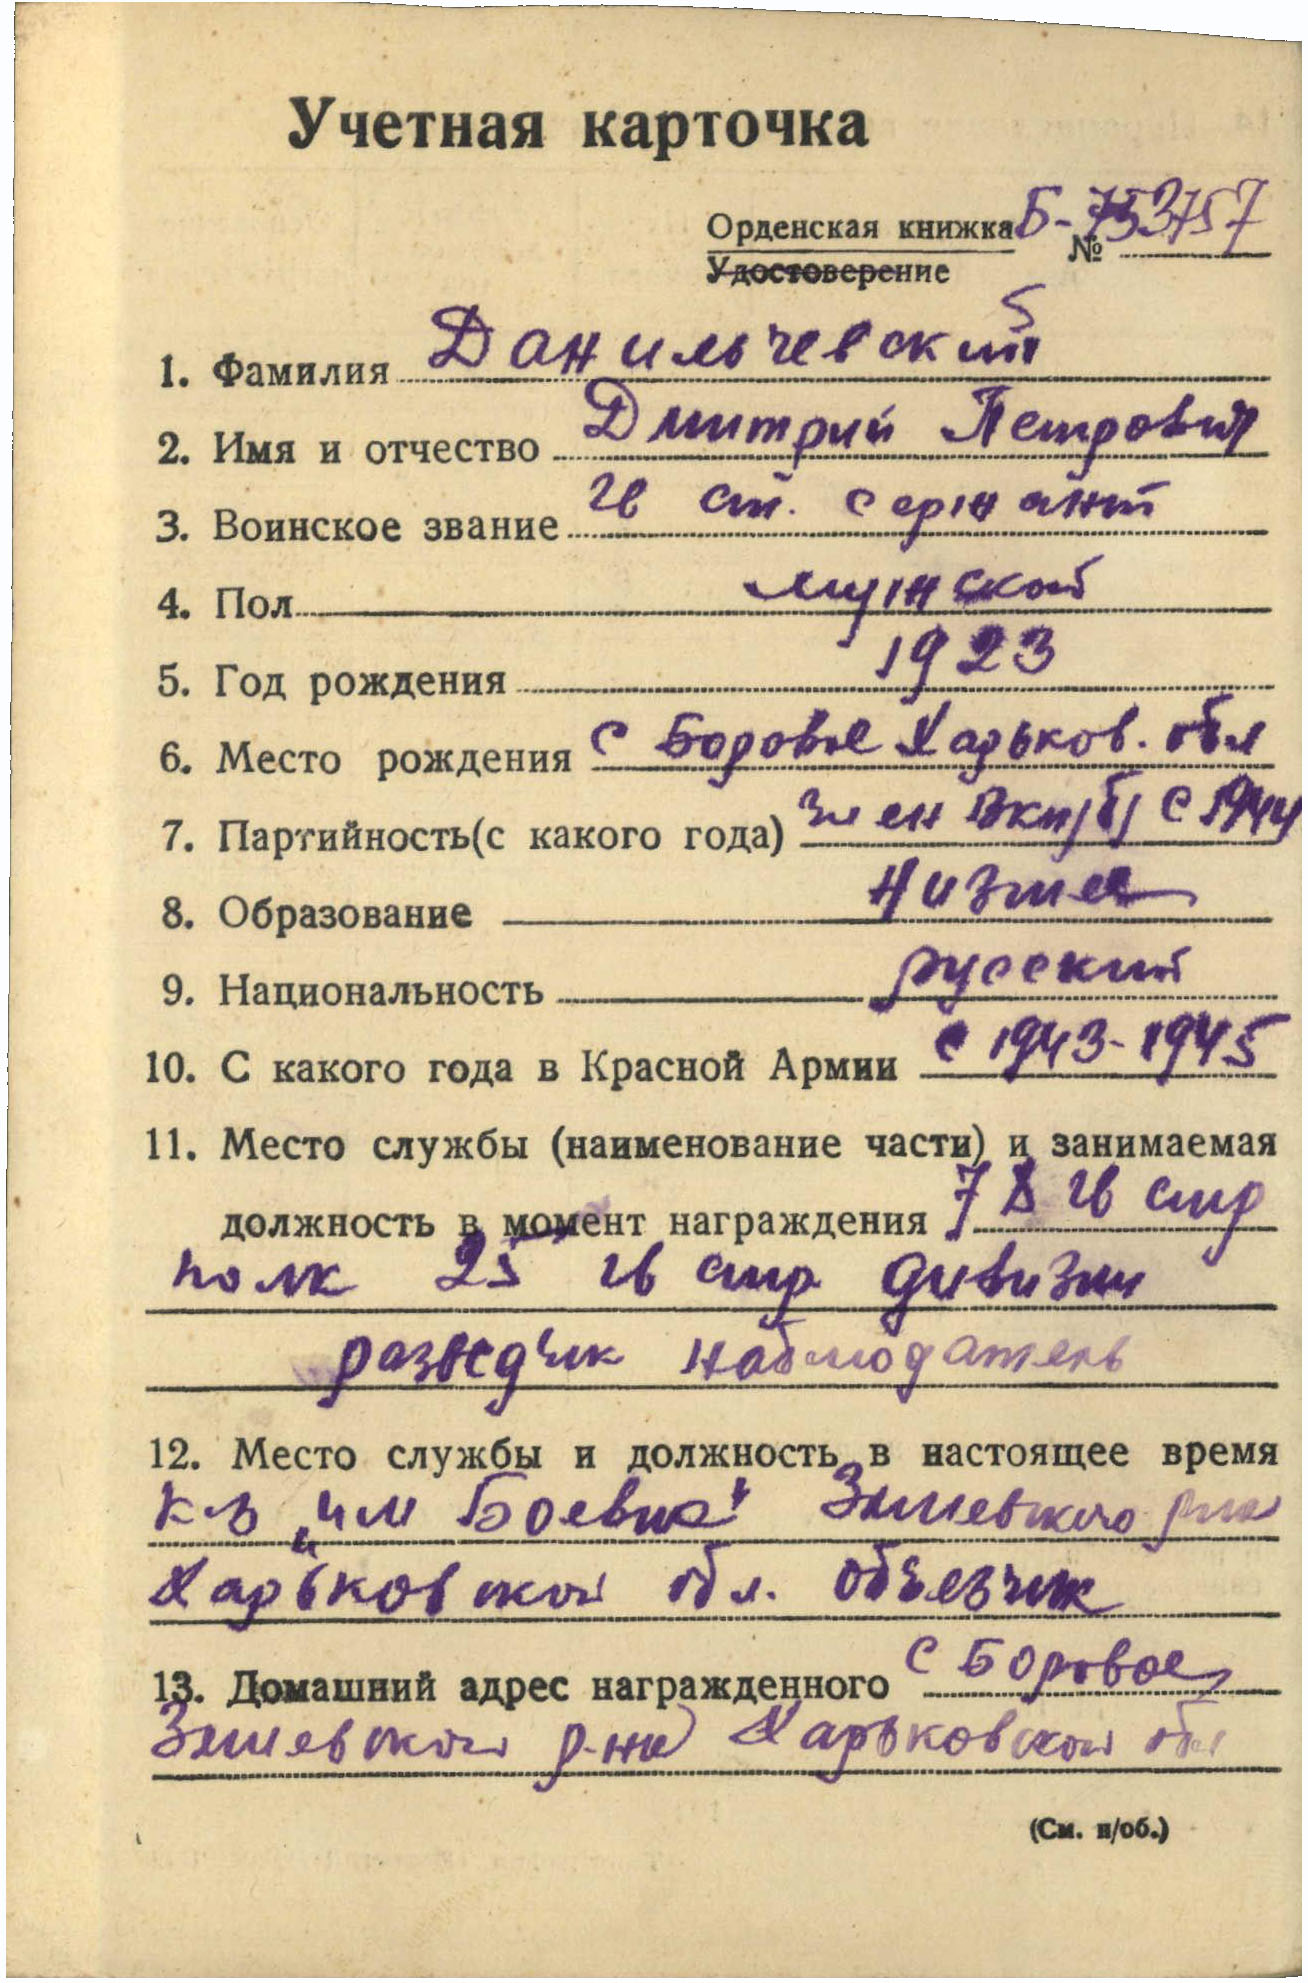 Учетная карточка
Орденская книжка Б-753757
Удостоверение №
1. Фамилия Данильчевский
2. Имя и отчество Дмитрий Петрович
3. Воинское звание гв ст. сержант
4. Пол мужской
5. Год рождения 1923
6. Место рождения с Боровое Харьков. обл
7. Партийность(с какого года) член ВКП/б/ с 1944
8. Образование низшее
9. Национальность русский
10. С какого года в Красной Армии с 1943-1945
11. Место службы (наименование части) и занимаемая
должность в момент награждения 78 гв стр
полк 25 гв стр дивизии
разведчик наблюдатель
12. Место службы и должность в настоящее время
к-з "им Боевика" Змиевского р-на
Харьковской обл. объезчик
13. Домашний адрес награжденного с Боровое,
Змиевской р-на Харьковской обл
(См. н/об.)